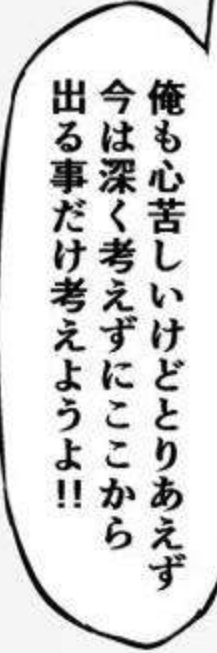 俺も心苦しいけどとりあえず
今は深く考えずにここから
出る事だけ考えようよ!!